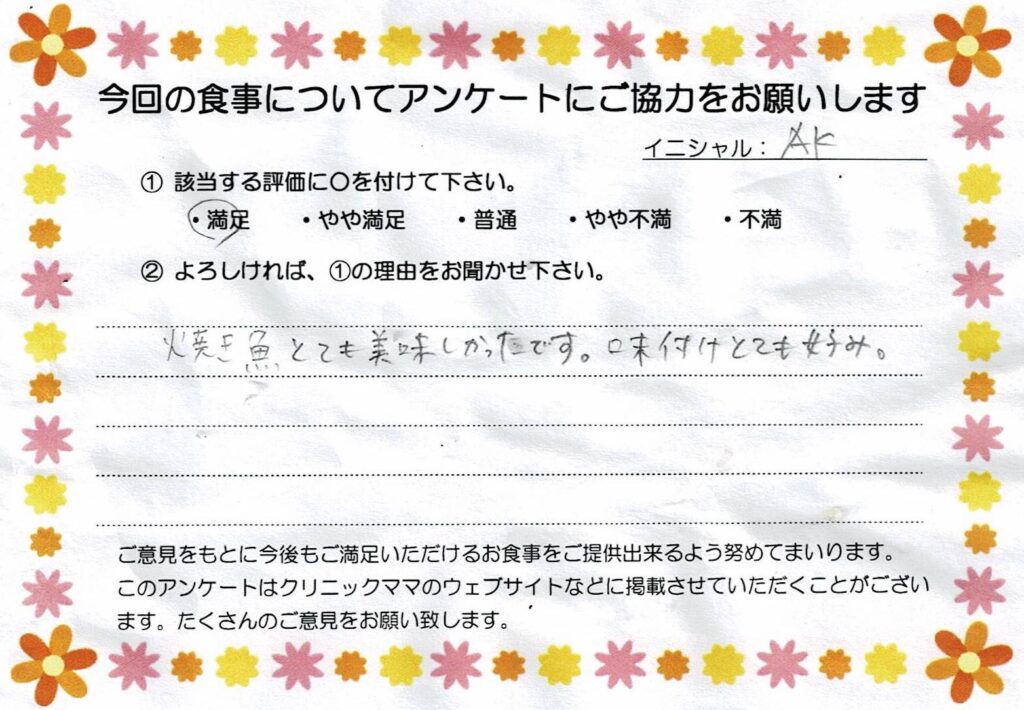 今回の食事についてアンケートにご協力をお願いします
イニシャル： AK
① 該当する評価に〇を付けて下さい。
・満足 ・やや満足 ・普通 ・やや不満 ・不満
② よろしければ、①の理由をお聞かせ下さい。
焼き魚とても美味しかったです。味付けとても好み。
ご意見をもとに今後もご満足いただけるお食事をご提供出来るよう努めてまいります。
このアンケートはクリニックママのウェブサイトなどに掲載させていただくことがござい
ます。たくさんのご意見をお願い致します。